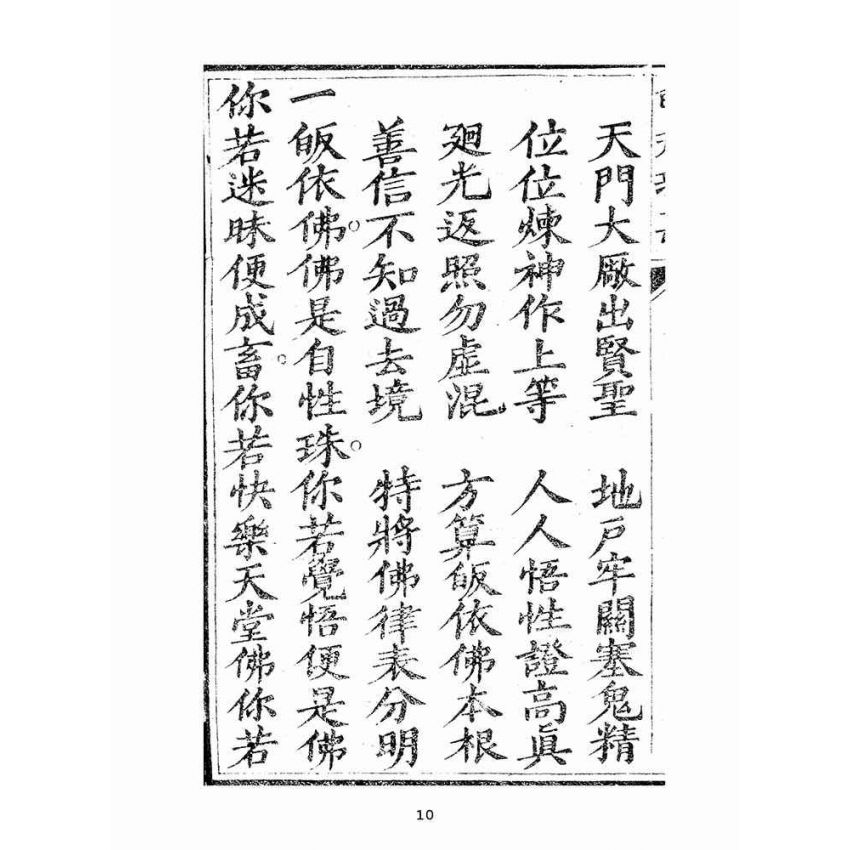 天門大厰出賢聖　地戶牢關塞鬼精
位位煉神作上等　人人悟性證高眞
廻光返照勿虛混　方算皈依佛本根
善信不知過去境　特將佛律表分明
一皈依佛。佛是自性珠。你若覺悟便是佛
你若迷昧便成畜。你若快樂天堂佛你若
10